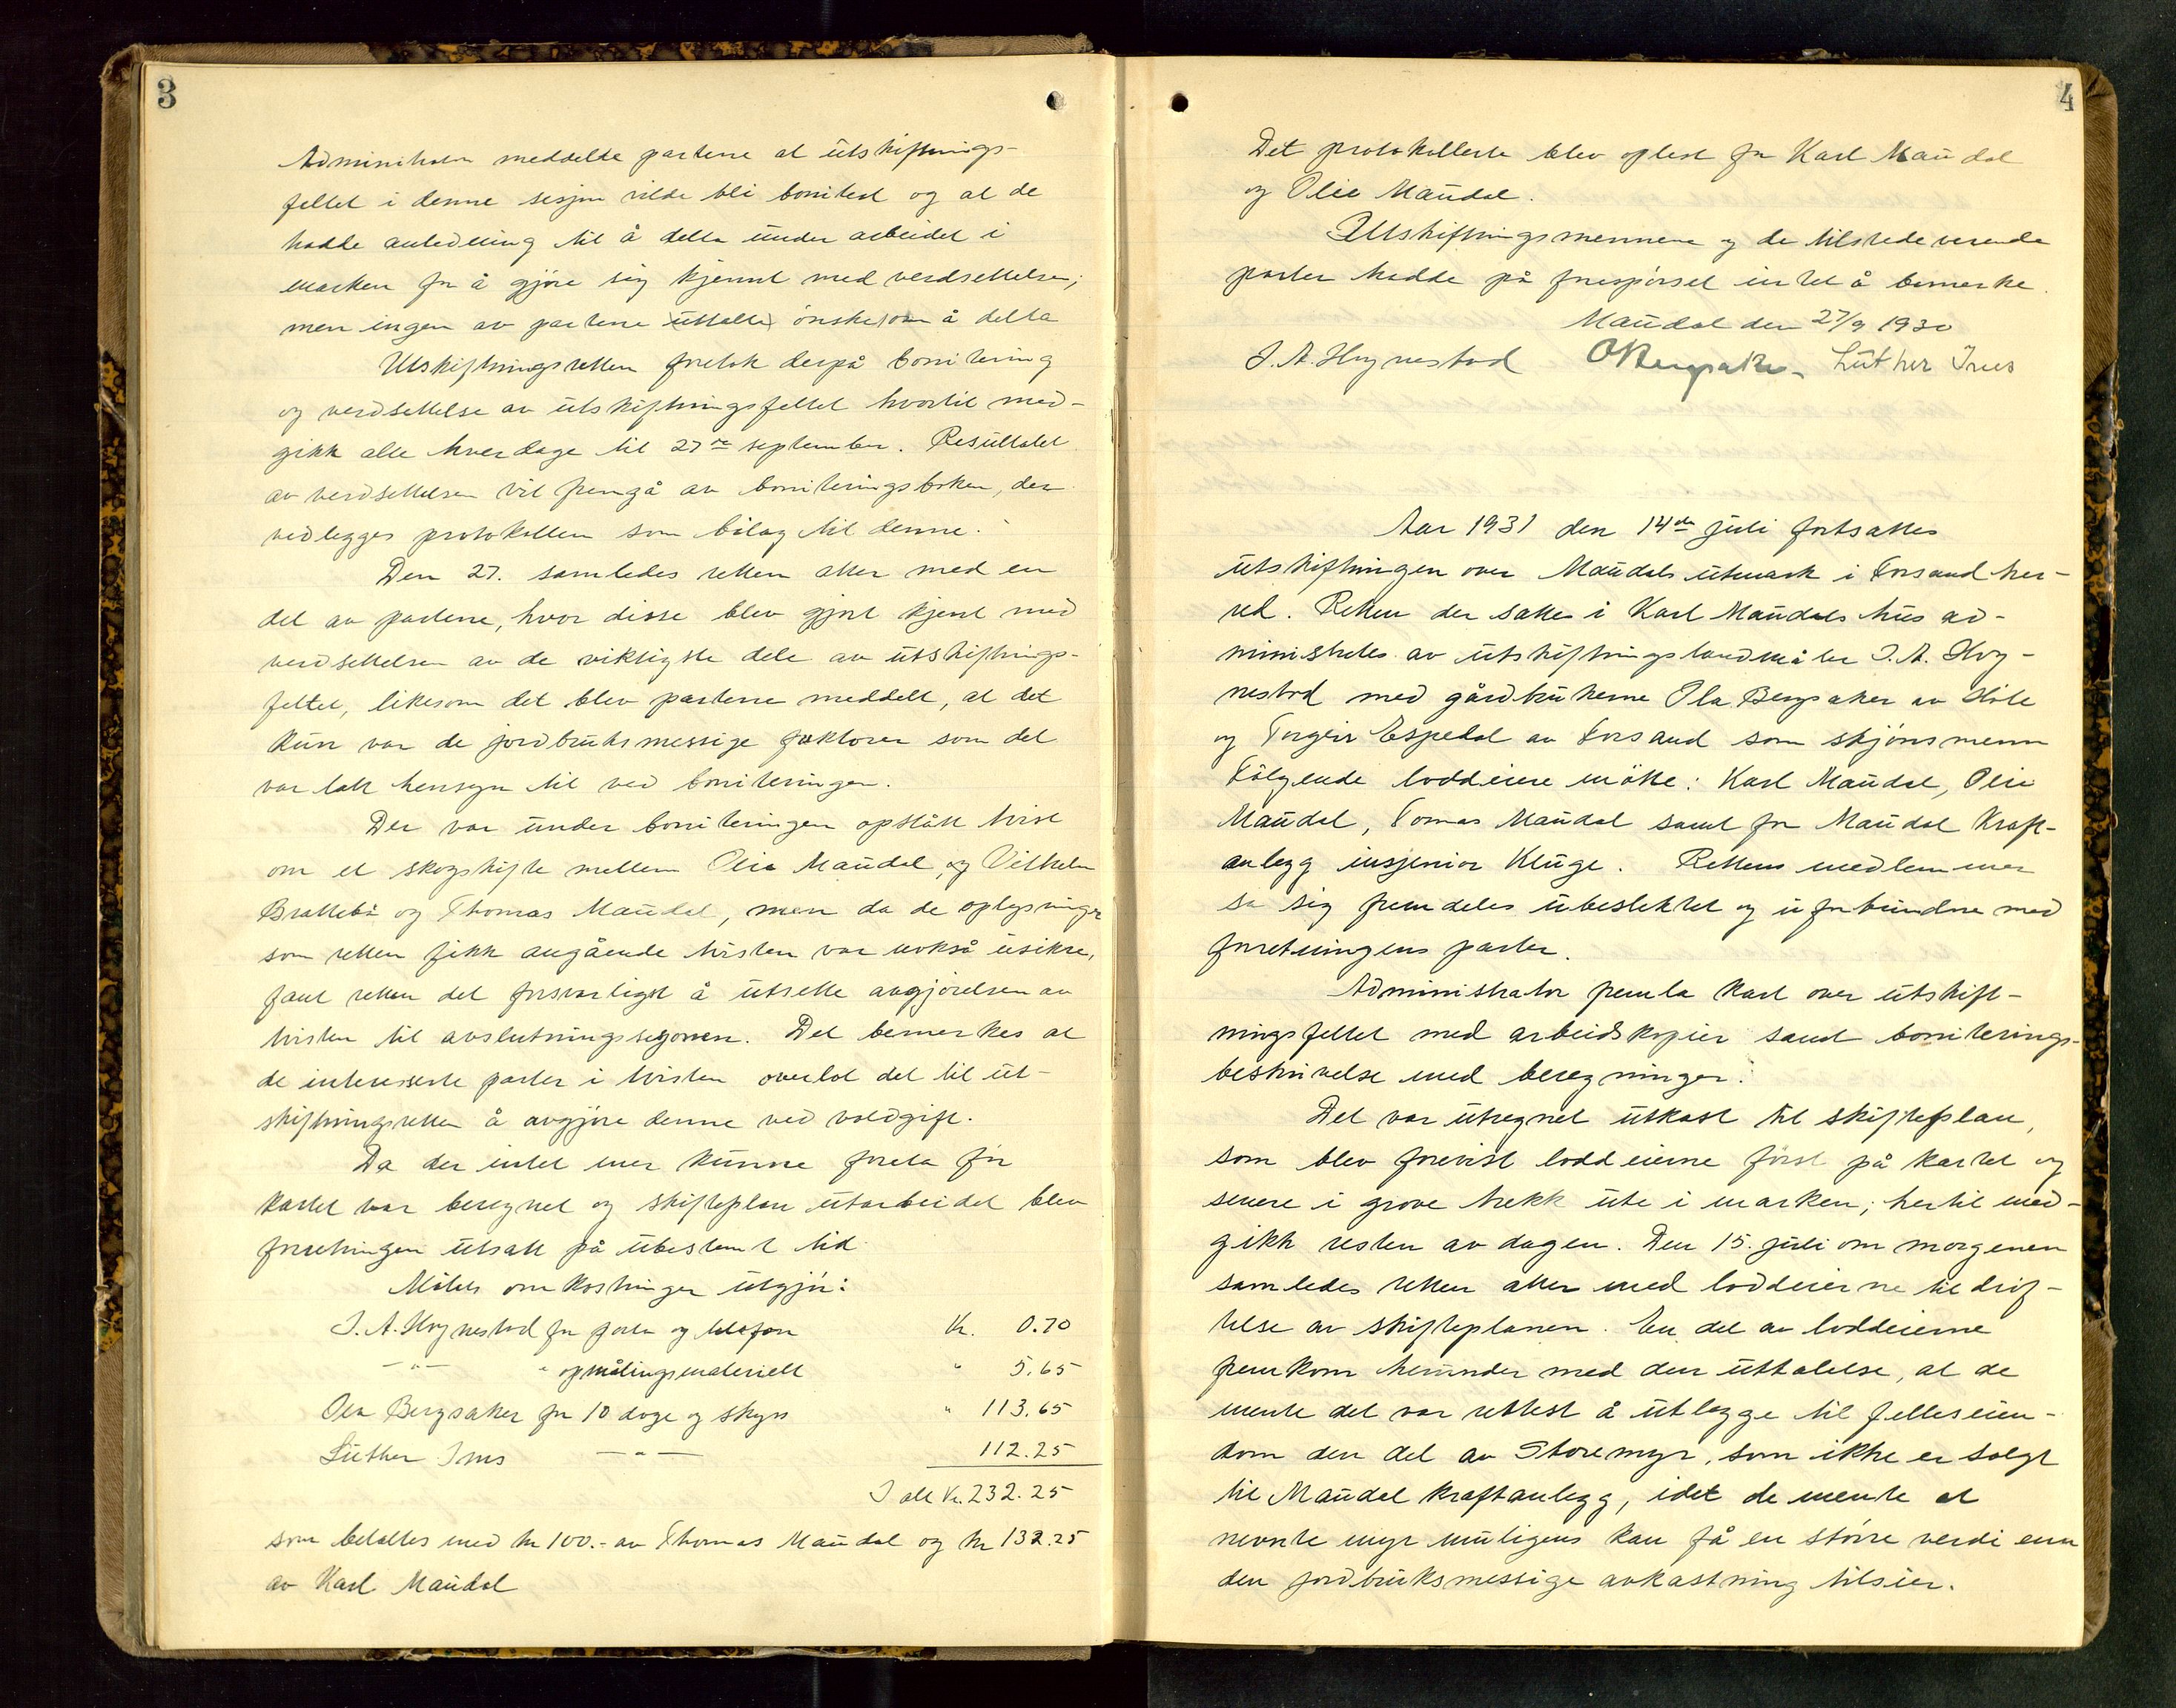 3
Administrator meddelte partene at utskiftnings-
feltet i denne sesjon vilde bli bonitert og at de
hadde anledning til å delta under arbeidet i
marken for å gjøre sig kjennt med verdsettelsen;
men ingen av partene uttalte ønske om å delta
Utskiftningsretten foretok derpå bonitering
og verdsettelse av utskiftningsfeltet hvortil med-
gikk alle hverdage til 27de september. Resultatet
av verdsettelsen vil fremgå av boniteringsboken, der
vedlegges protokollen som bilag til denne.
Den 27. samledes retten atter med en
del av partene, hvor disse blev gjort kjent med
verdsettelsen av de viktigste dele av utskiftnings-
feltet, likesom det blev partene meddelt, at det
kun var de jordbruksmessige faktorer som det
var tatt hensyn til ved boniteringen.
Der var under boniteringen opstått tvist
om et skogskifte mellem Olie Maudal, og Vilhelm
Brattebö og Thomas Maudal, men da de oplysninger
som retten fikk angående tvisten var nokså usikre,
fant retten det forsvarligst å utsette avgjørelsen av
tvisten til avslutningssesjonen. Det bemerkes at
de interesserte parter i tvisten overlot det til ut-
skiftningsretten å avgjøre denne ved voldgift.
Da der intet mer kunne foreta før
kartet var beregnet og skifteplan utarbeidet blev
forretningen utsatt på ubestemt tid
Møtets omkostninger utgjør:
I. A. Høynestad for porto og telefon Kr. 0.70
—"— " opmålingsmateriell " 5.65
Ola Bergsaker for 10 dage og skyss " 113.65
Luther Ims —"— 112.25
I alt Kr. 232.25
som betaltes med kr 100.- av Thomas Maudal og kr 132.25
av Karl Maudal
4
Det protokollerte blev oplest for Karl Maudal
og Olie Maudal.
Utskiftningsmennene og de tilstedeverende
parter hadde på forespørsel intet å bemerke.
Maudal den 27/9 1930
I. A. Høynestad O Bergsaker Luther Imes
Aar 1931 den 14de juli fortsattes
utskiftningen over Maudals utmark i Forsand her-
red. Retten der sattes i Karl Maudals hus ad-
ministreltes av utskiftningslandmåler I. A. Høy-
nestad med gårdbrukerne Ola Bergsaker av Höle
og Torgeir Espedal av Forsand som skjönsmenn
Fölgende loddeiere mötte: Karl Maudal, Olie
Maudal, Tomas Maudal samt for Maudal Kraft-
anlegg insjeniør Kluge. Rettens medlemmer
sa sig fremdeles ubeslektet og uforbundne med
forretningens parter.
Administrator fremla kart over utskift-
ningsfeltet med arbeidskopier samt boniterings-
beskrivelse med beregninger.
Det var utregnet utkast til skifteplan,
som blev forevist loddeierne først på kartet og
senere i grove trekk ute i marken; hertil med-
gikk resten av dagen. Den 15. juli om morgenen
samledes retten atter med loddeierne til drøf-
telse av skifteplanen. En del av loddeierne
fremkom herunder med den uttalelse, at de
mente det var rettest å utlegge til felleseien-
dom den del av Storemyr, som ikke er solgt
til Maudal kraftanlegg, idet de mente at
nevnte myr muligens kan få en større verdi enn
den jordbruksmessige avkastning tilsier.